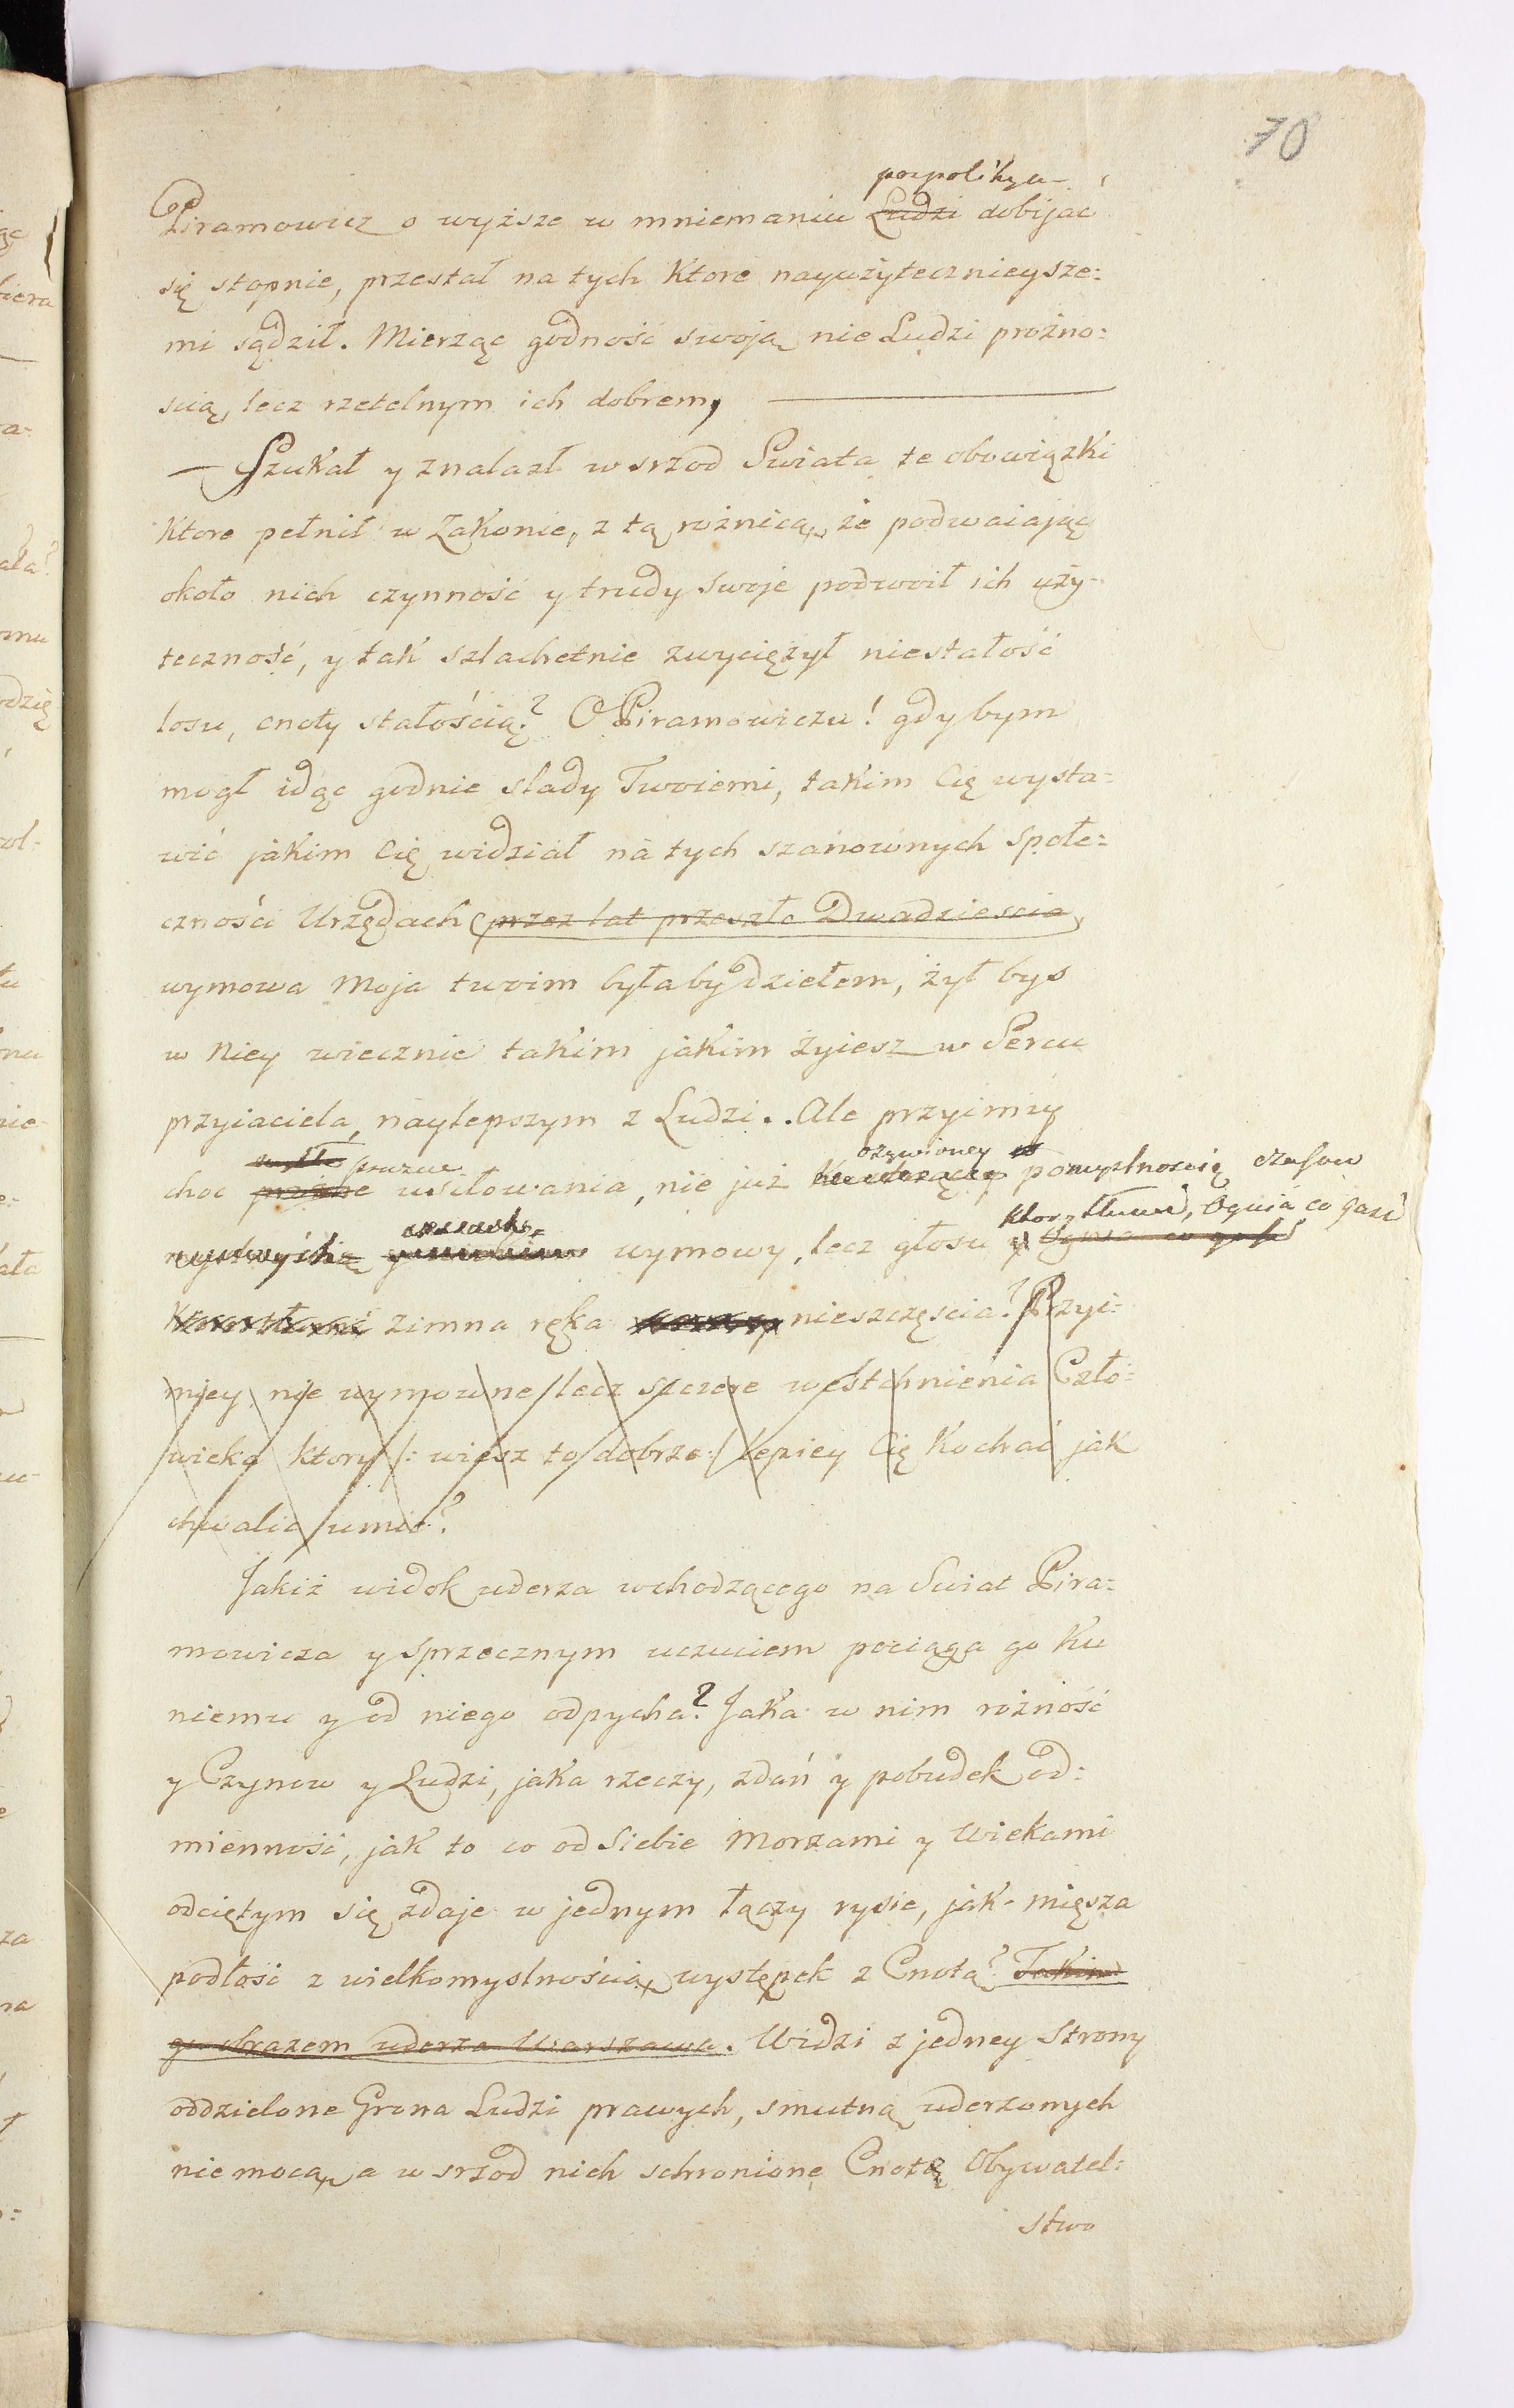 70
pospolitym
Piramowicz o wyższe w mniemaniu Ludzi dobijac
się stopnie, przestał na tych Ktore nayużytecznieysze:
mi sądził. Mierząc godność swoją nie Ludzi prożno:
scią, lecz rzetelnym ich dobrem,
— Szukał y znalazł wsrzod Swiata te obowiązki
Ktore pełnił w Zakonie, z tą rożnicą, że podwaiając
około nich czynność y trudy swoje podwoił ich uży-
teczność, y tak szlachetnie zwyciężył niestałość
losu, cnoty stałością? O Piramowiczu! gdybym
mogł idąc godnie slady Twoiemi, takim Cię wysta-
wić jakim Cię widział na tych szanownych społe:
czności Urzędach (przez lat przeszło Dwadziescia)
wymowa moja twoim byłaby dziełem, żył bys
w Niey wiecznie takim jakim żyiesz w Sercu
przyiaciela, naylepszym z Ludzi.. Ale przyimiy
ożywioney
choc usiłowania, nie już pomyslnoscią czasow
ktory tłumi, Ognia co gasi
wymowy, lecz głosu
zimna ręka nieszczęscia? Przyi:
miey nie wymowne lecz szczere westchnienia Czło:
wieka ktory /: wiesz to dobrze :/ lepiey Cię Kochać jak
chwalic umie?
Jakiż widok uderza wchodzącego na Swiat Pira:
mowicza y sprzecznym uczuciem pociąga go Ku
niemu y od niego odpycha? Jaka w nim rożność
y Czynow y Ludzi, jaka rzeczy, zdań y pobudek od:
mienność, jak to co od Siebie Morzami y Wiekami
odciętym się zdaje w jednym łączy rysie, jak mięsza
podłość z wielkomyslnością, występek z Cnotą? Takim
go obrazem uderza Warszawa. Widzi z jedney Strony
oddzielone Grona Ludzi prawych, smutną uderzonych
niemocą, a wsrzod nich schronione Cnotę Obywatel:
stwo